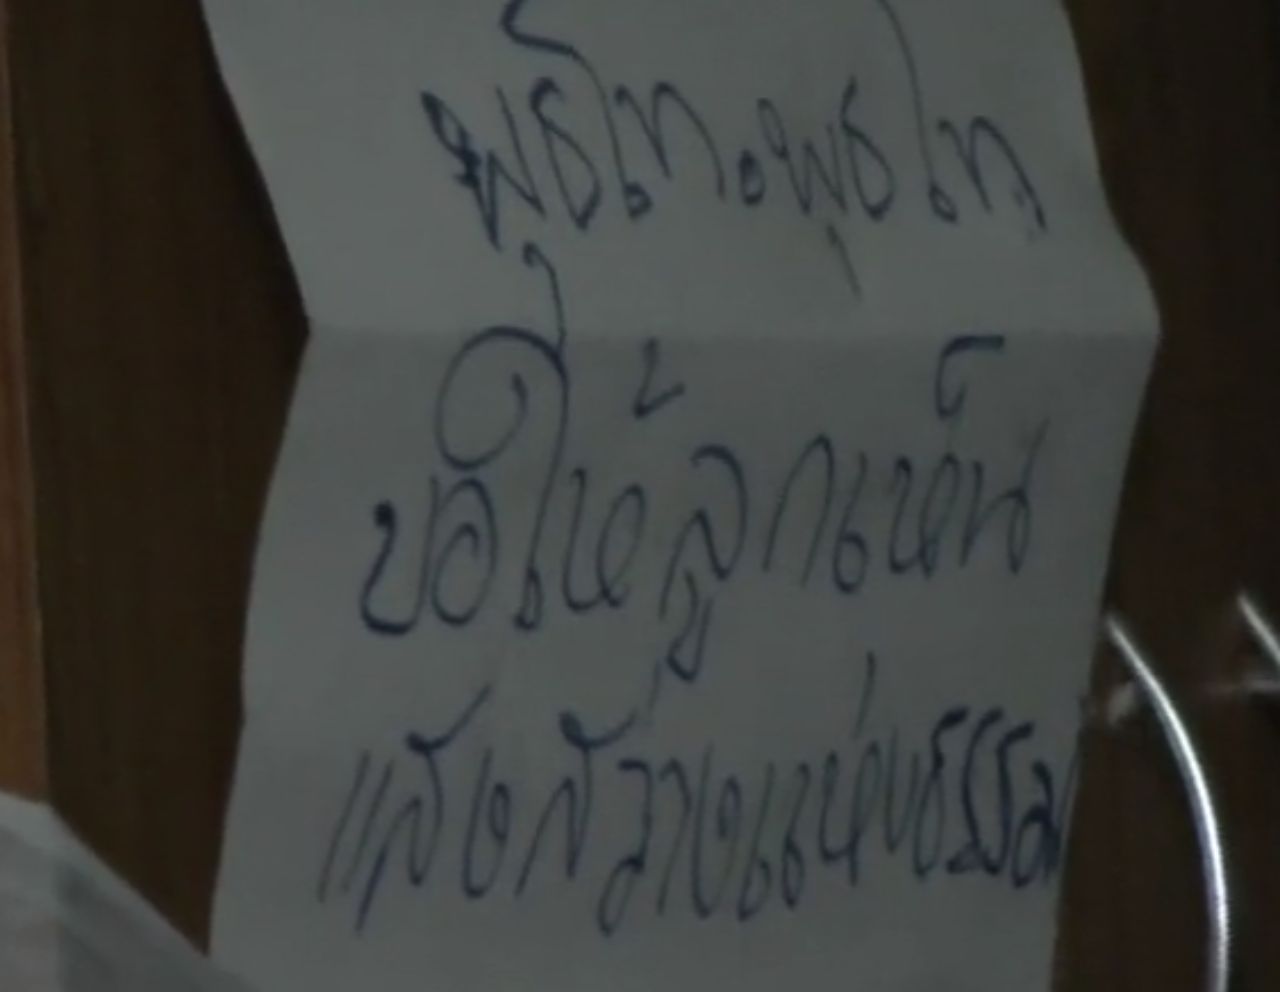 พุธโท.พุธโท
ขอให้ลูกเห็น
แสงสว่างแห่งธรรม